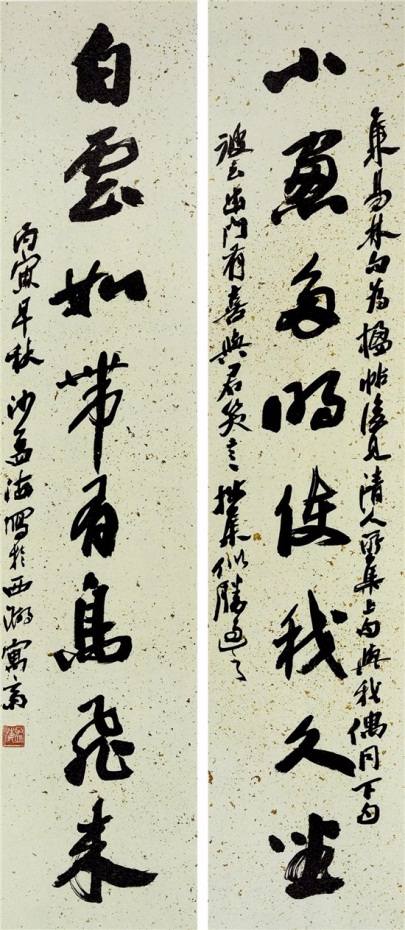 小窗多明使我久坐
集易林句為楹帖後見清人所集上句與我偶同下句
彼云出門有喜與君笑言拙集似勝過之
白雲如帶有鳥飛來
丙寅早秋沙孟海寫於西湖寓齋